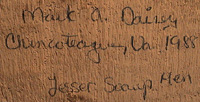 Mark A. Daisey
Chincoteague, Va. 1988
Lesser Scaup Hen